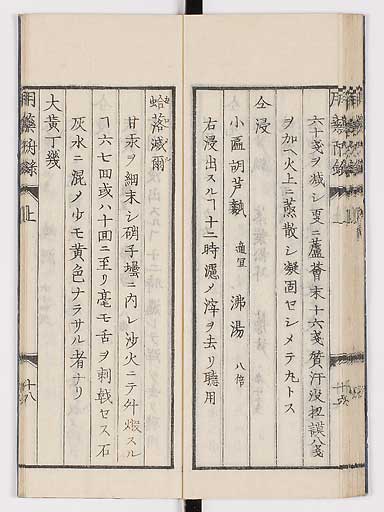 六十戔ヲ減シ更ニ蘆薈末十六戔賛汗沒扭謨八戔
ヲ加ヘ火上ニ蒸散シ凝固セシメテ丸トス
仝浸
小匾胡芦藙 適宜 沸湯 八倍
右浸出スルヿ十二時濾メ滓ヲ去リ聴用
蛤落滅爾
甘汞ヲ細末シ硝子壜ニ内レ沙火ニテ升煅スル
ヿ六七回或ハ十回ニ至リ毫モ舌ヲ刺戟セス石
灰水ニ混メ少モ黄色ナラサル者ナリ
大黄丁幾
用薬附録
上
十八